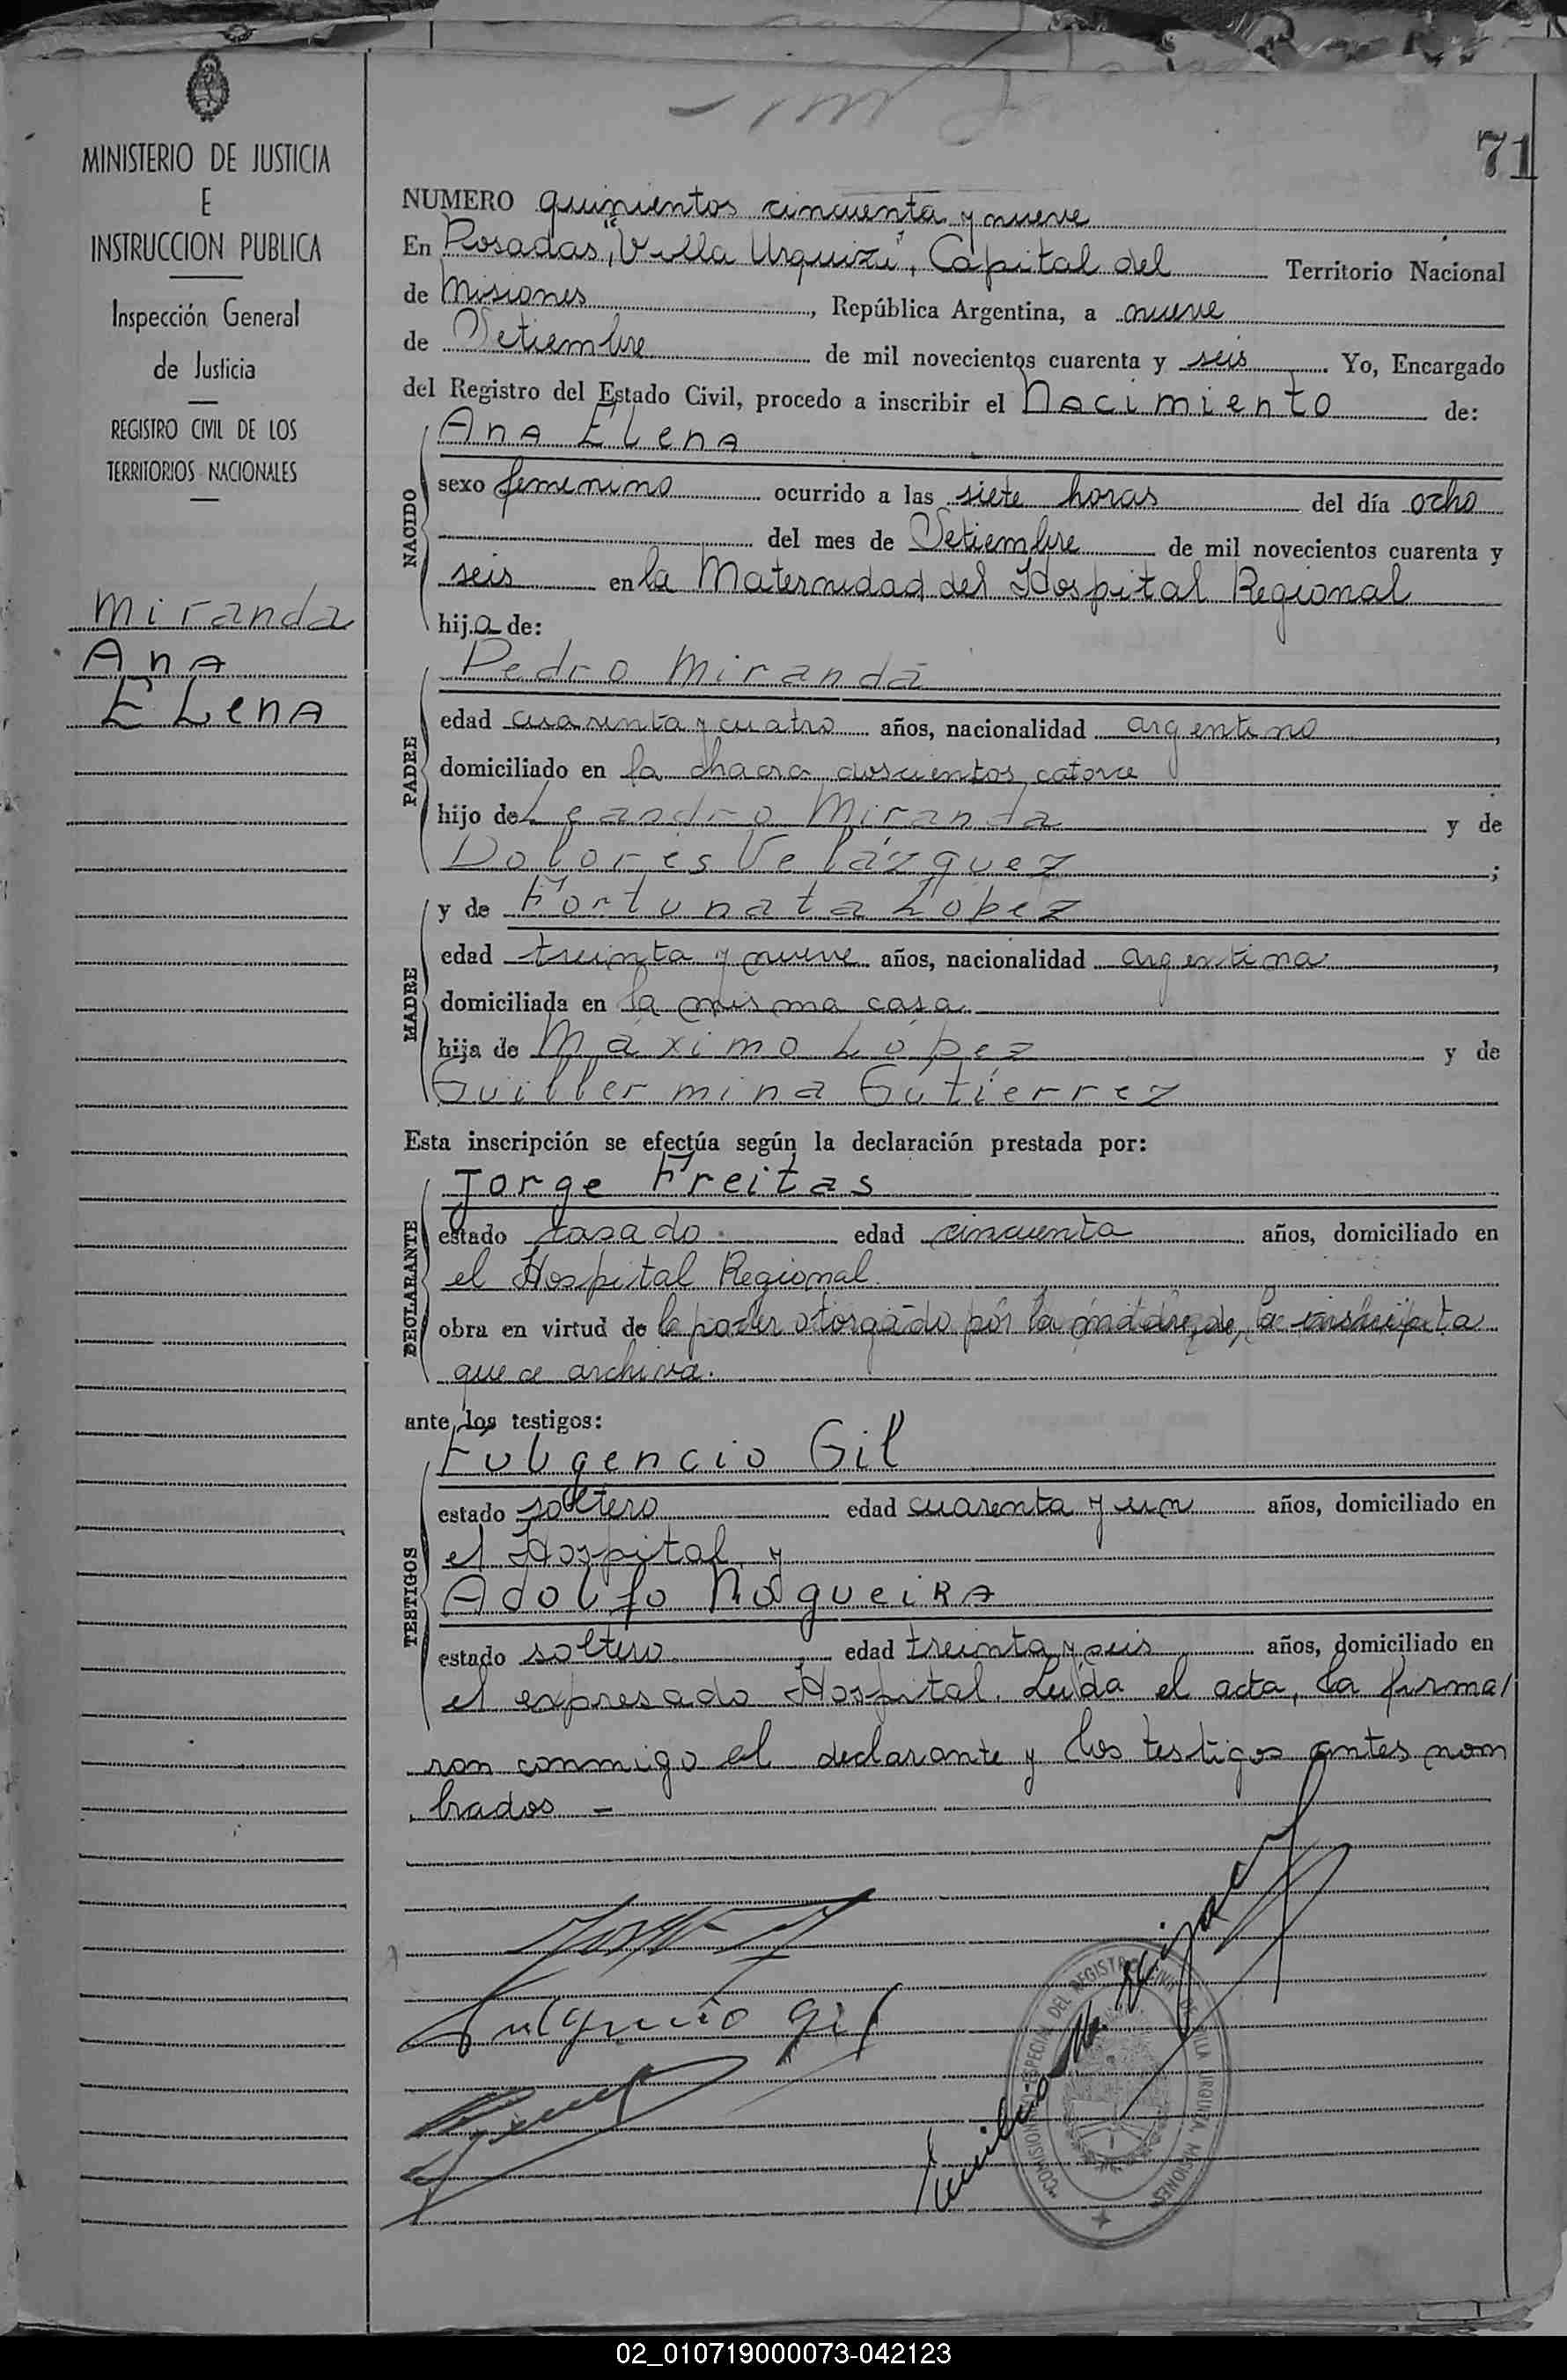 71
MINISTERIO DE JUSTICIA
E
INSTRUCCION PUBLICA
Inspección General
de Justicia
REGISTRO CIVIL DE LOS
TERRITORIOS NACIONALES
Miranda
Ana
Elena
NUMERO quinientos cincuenta y nueve
En Posadas, "Villa Urquiza", Capital del Territorio Nacional
de Misiones, República Argentina, a nueve
de Setiembre de mil novecientos cuarenta y seis. Yo, Encargado
del Registro del Estado Civil, procedo a inscribir el Nacimiento de:
NACIDO
Ana Elena
sexo femenino ocurrido a las siete horas del día ocho
del mes de Setiembre de mil novecientos cuarenta y
seis en la Maternidad del Hospital Regional
hija de:
PADRE
Pedro Miranda
edad cuarenta y cuatro años, nacionalidad argentino,
domiciliado en la chacra doscientos catorce
hijo de Leandro Miranda y de
Dolores Velázquez;
MADRE
y de Fortunata López
edad treinta y nueve años, nacionalidad argentina,
domiciliada en la misma casa
hija de Máximo López y de
Guillermina Gutierrez
Esta inscripción se efectúa según la declaración prestada por:
DECLARANTE
Jorge Freitas
estado casado. edad cincuenta años, domiciliado en
el Hospital Regional.
obra en virtud de poder otorgado por la madre de la inscripta
que se archiva.
ante los testigos:
TESTIGOS
Fulgencio Gil
estado soltero edad cuarenta y un años, domiciliado en
el Hospital, y
Adolfo Nogueira
estado soltero edad treinta y seis años, domiciliado en
el expresado Hospital. Leída el acta, la firma/
ron conmigo el declarante y los testigos antes nom
brados -
Fulgencio Gil
COMISIONADO ESPECIAL DEL REGISTRO CIVIL DE VILLA URQUIZA, MISIONES
02_010719000073-042123